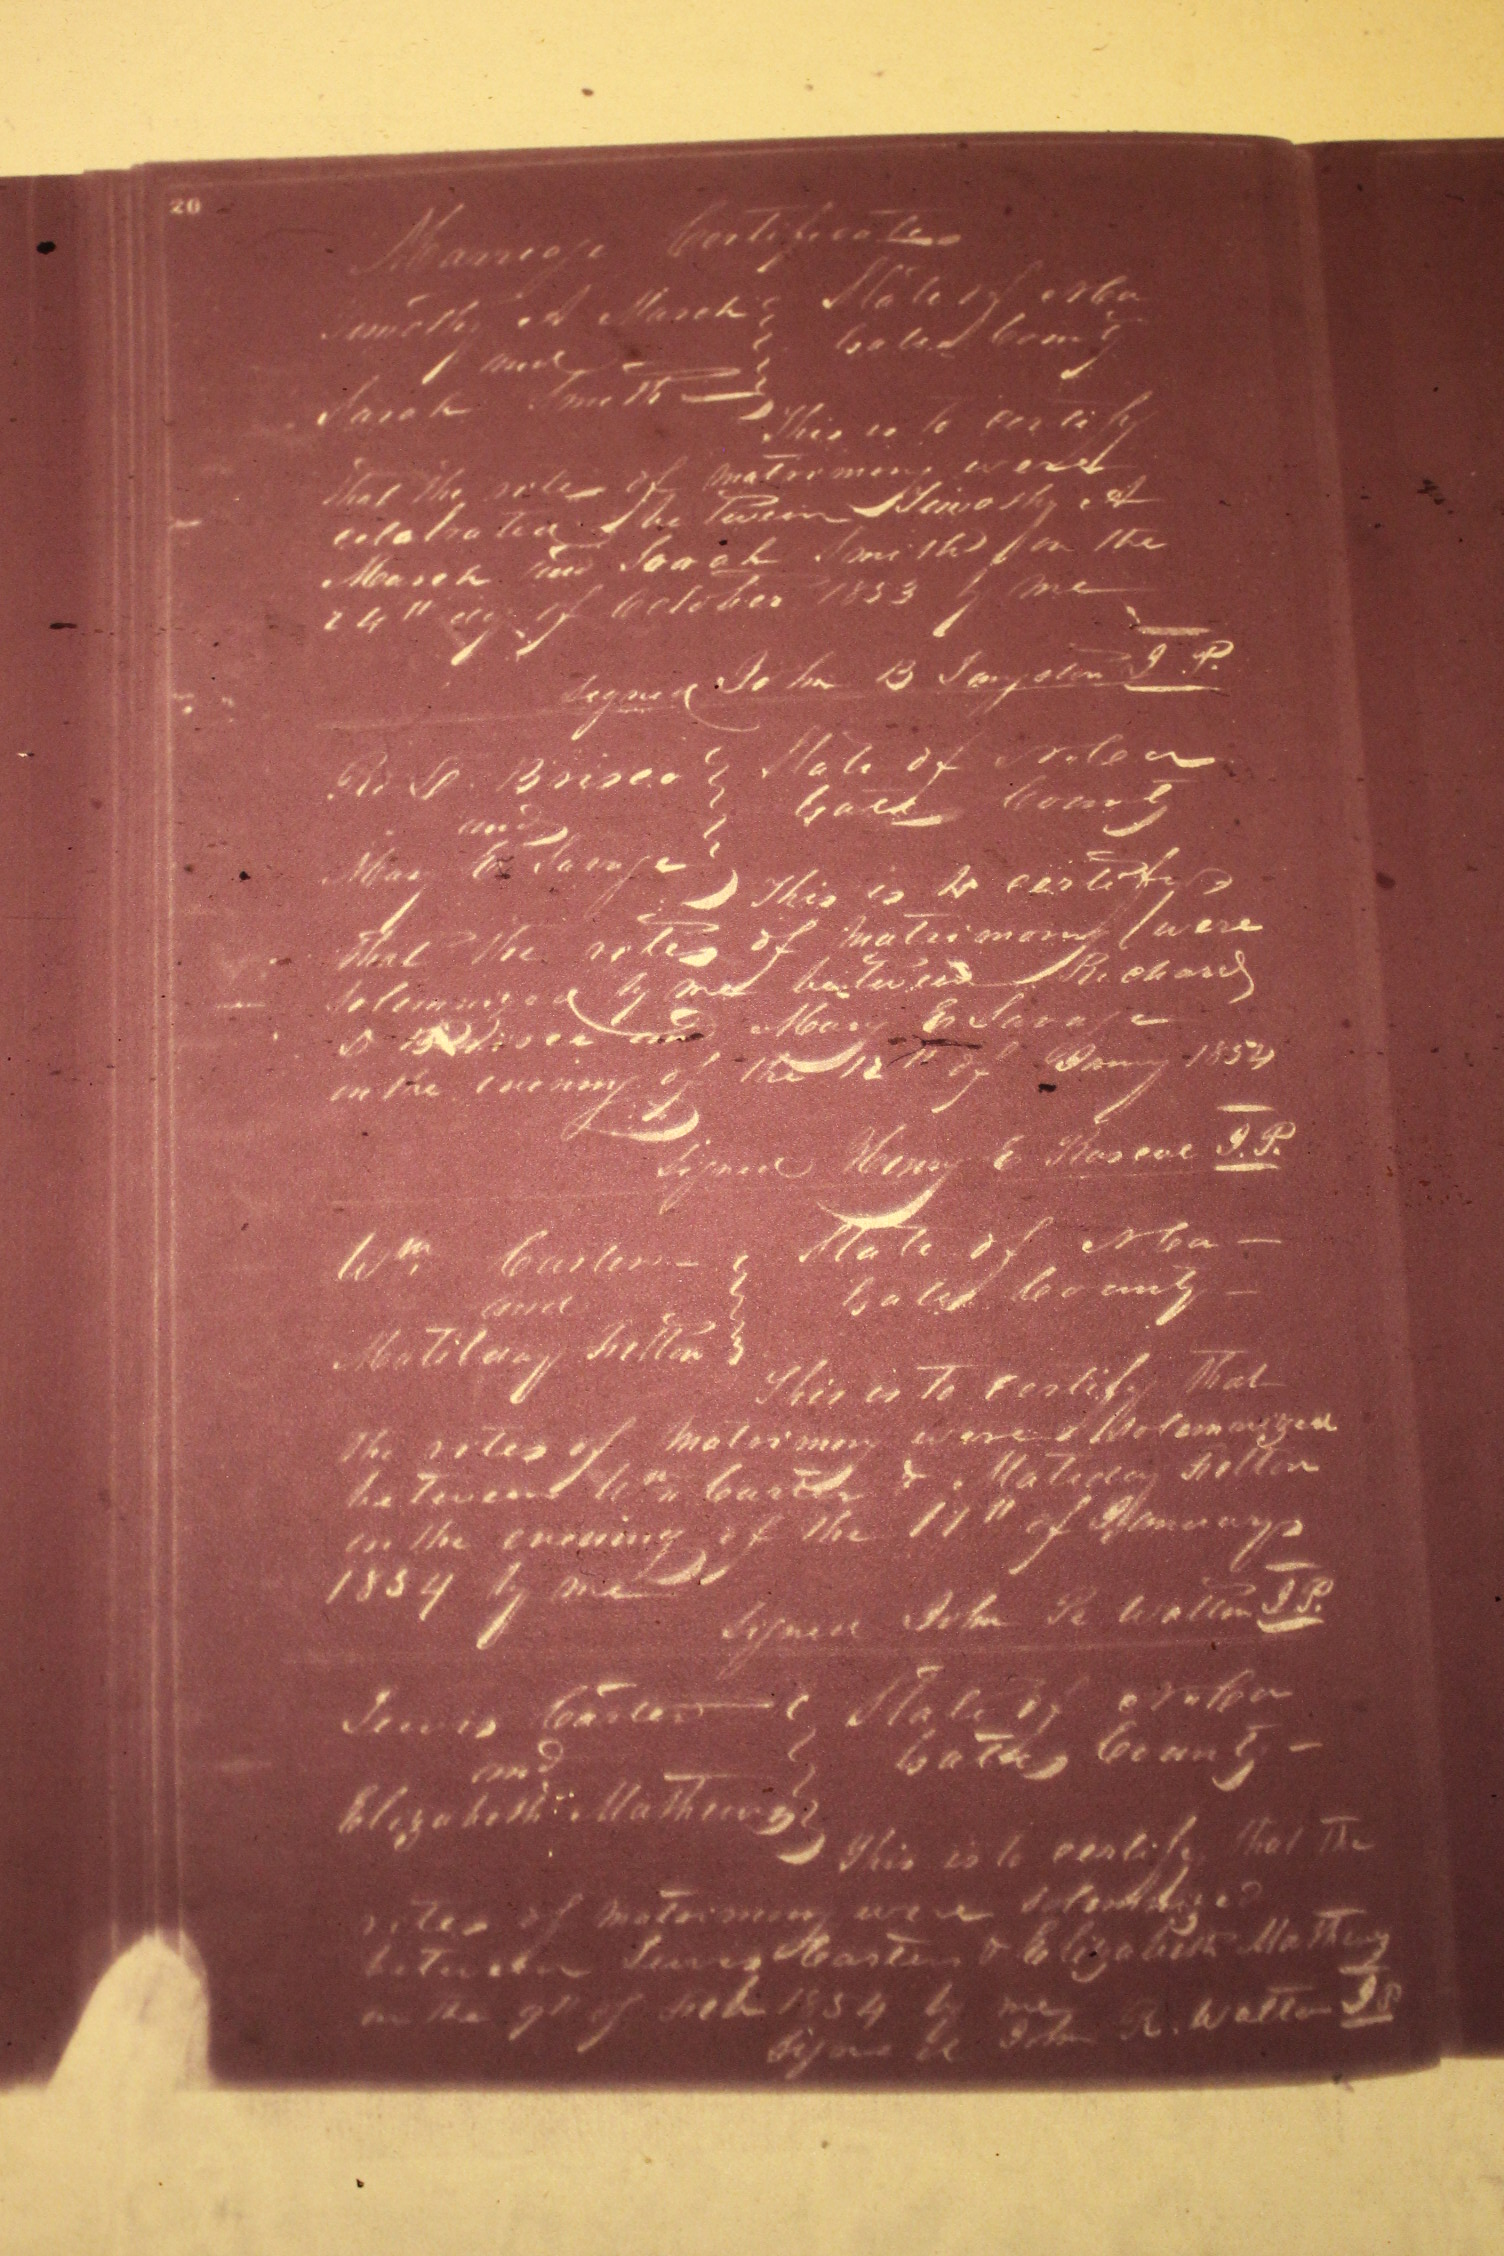 20
Marriage Certificates
Timothy A March State of N Ca
and Gates County
Sarah Smith
This is to certify
that the rites of matrimony were
celebrated between Timothy A
March and Sarah Smith on the
24th dy of October 1853 by me
Signed John B Langston J. P.
R. D. Brisco State of N Ca
and Gates County
Mary E Savage
This is to certify
that the rites of matrimony were
solemnized by me between Richard
D Brisco and Mary E Savage
on the evening of the 12th of January 1854
Signed Henry E Roscoe J. P.
Wm Carter State of N Ca
and Gates County
Matilday Felton
This is to certify that
the rites of matrimony were solemnized
between Wm Carter & Matilday Felton
on the evening of the 17th of January
1854 by me
Signed John R Walton J P.
Lewis Carter State of N Ca
and Gates County
Elizabeth Mathews
This is to certify that the
rites of matrimony were solemnized
between Lewis Carter & Elizabeth Mathews
on the 9th of Feb 1854 by me
Signed John R. Walton J P